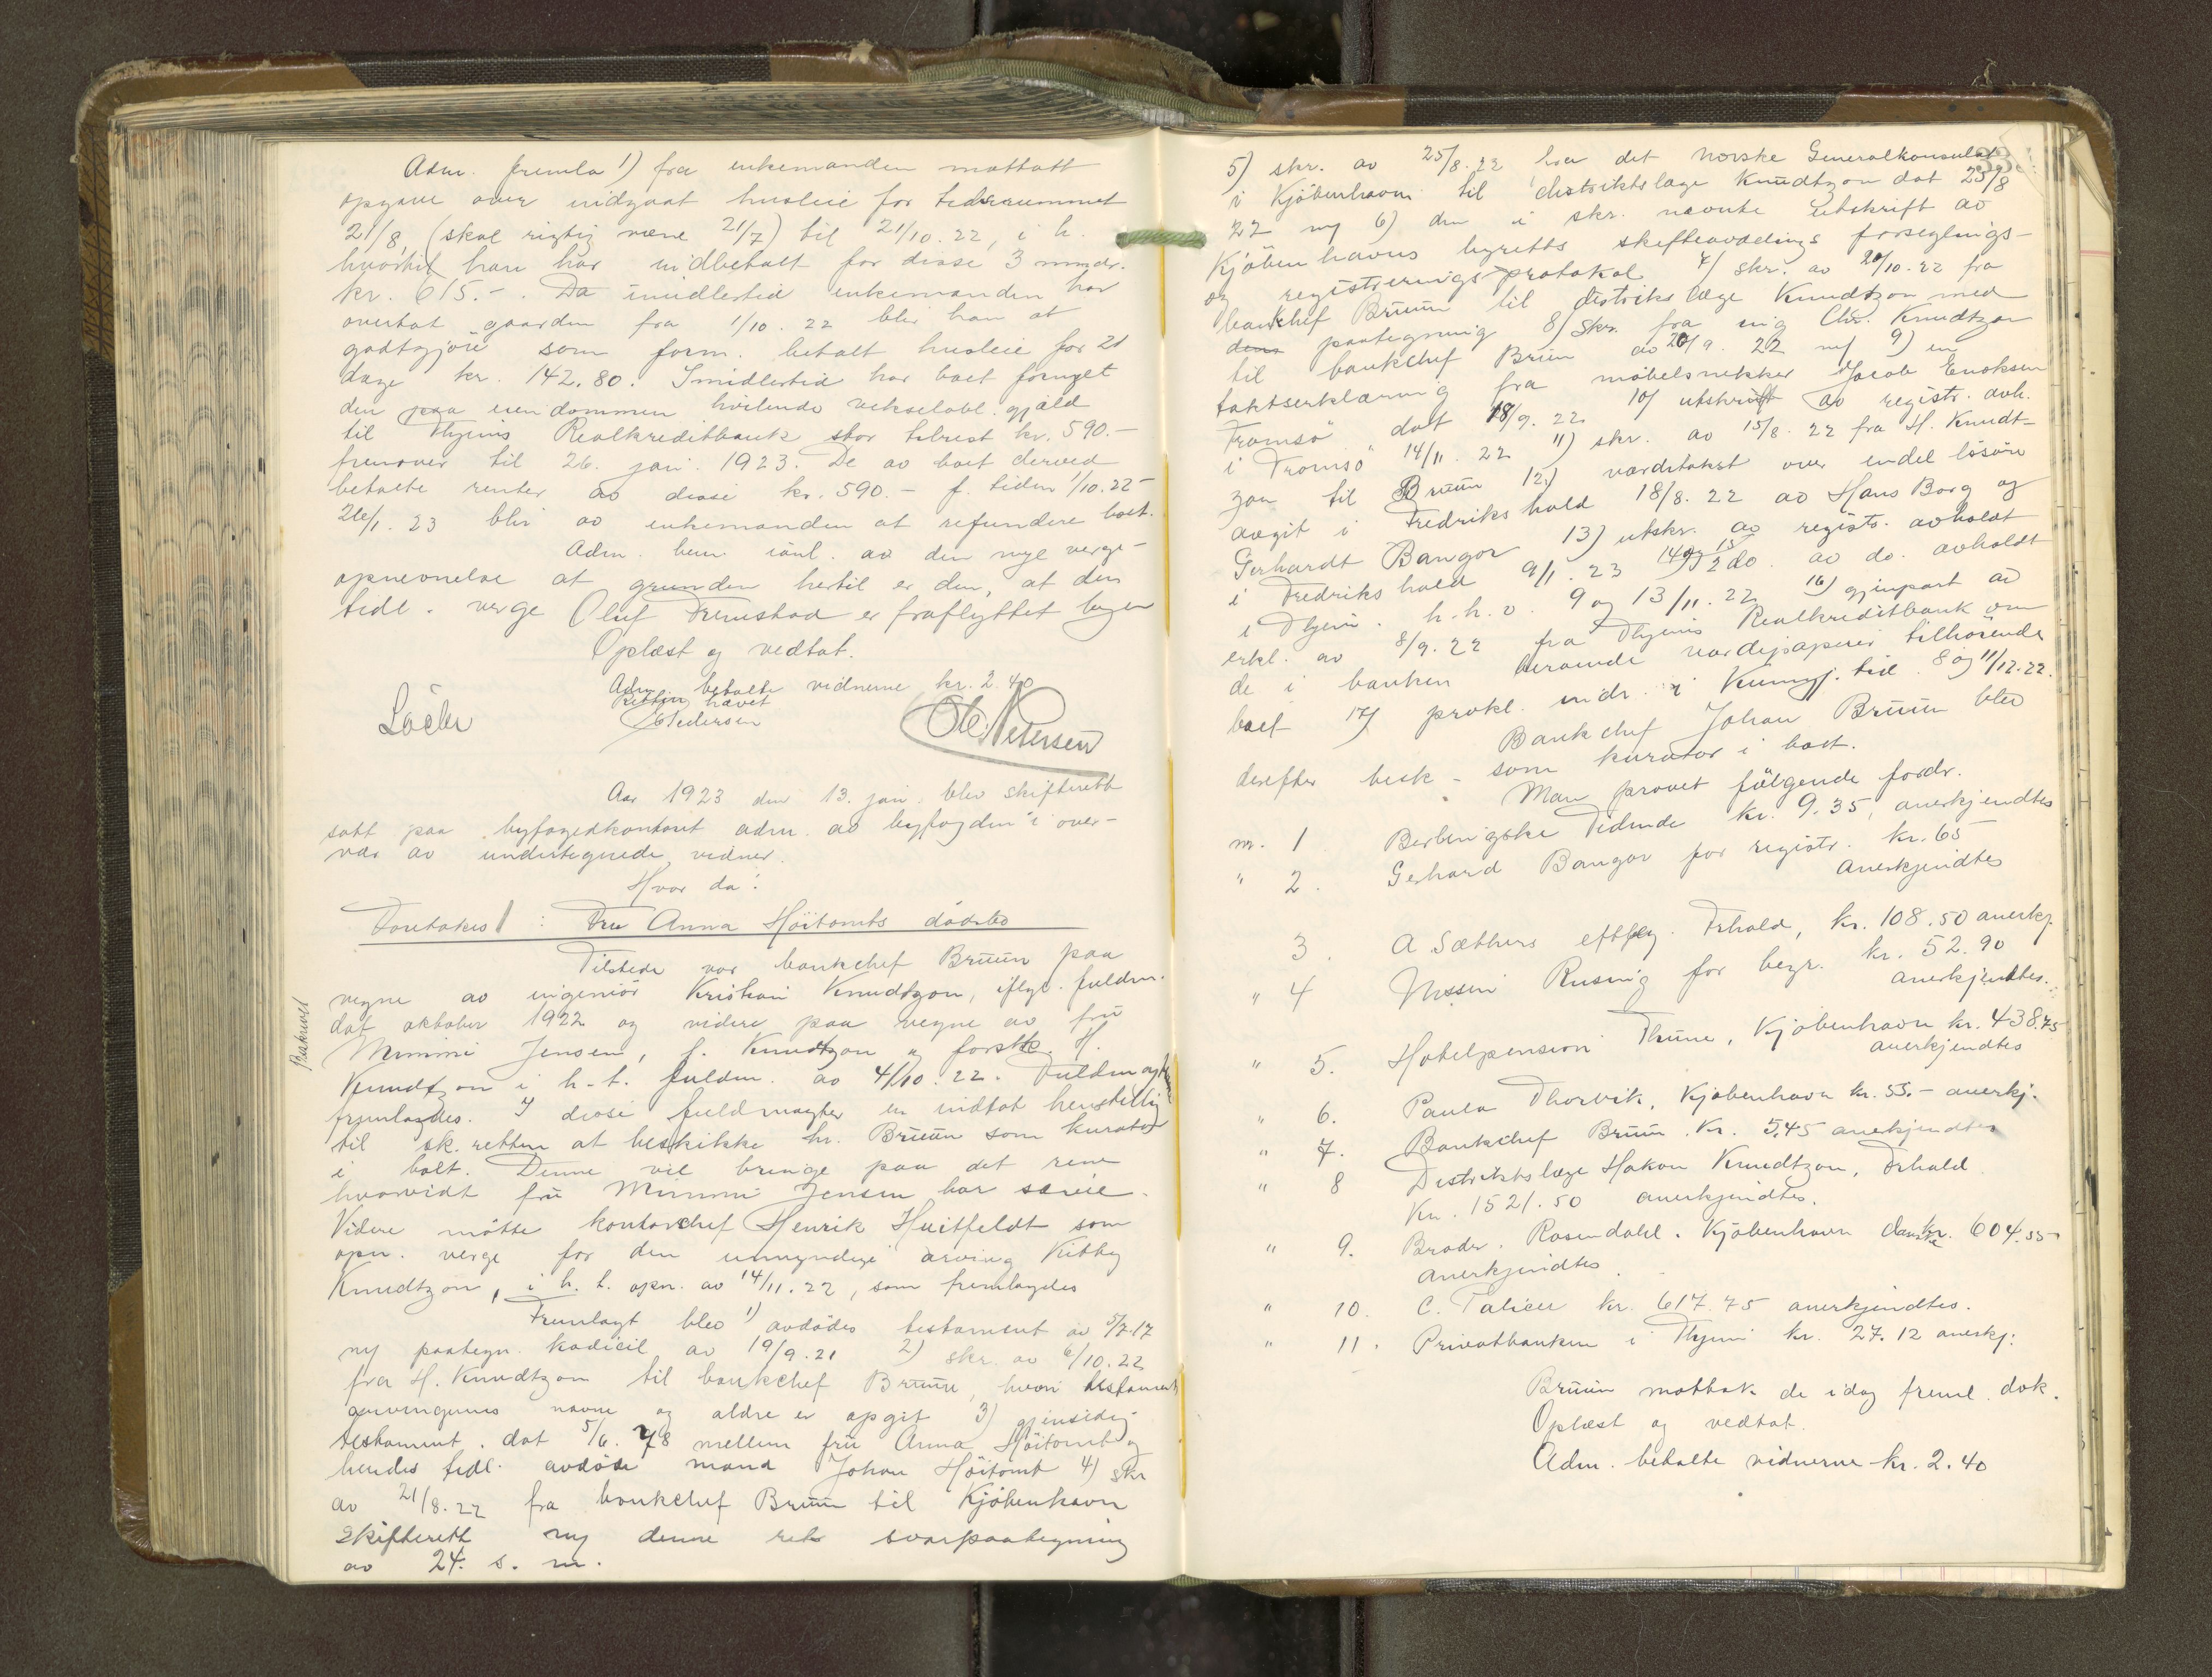 Adm. fremla 1) fra enkemanden mottatt
opgave over indgaat husleie for tidsrummet
21/8, (skal rigtig være 21/7) til 21/10. 22, i h.
hvortil han har indbetalt for disse 3 mndr.
kr. 615.-. Da imidlertid enkemanden har
overtat gaarden fra 1/10. 22 blir han at
godtgjøre som form. betalt husleie for 21
dage kr. 142.80. Imidlertid har boet fornyet
den paa eiendommen hvilende vekselobl. gjæld
til Thjems Realkreditbank stor tilrest kr. 590.-
fremover til 26. jan. 1923. De av boet derved
betalte renter av disse kr. 590.- f. tiden 1/10. 22 -
26/1. 23 blir av enkemanden at refundere boet.
Adm. bem. i anl. av den nye verge-
opnevnelse at grunden hertil er den, at den
tidl. verge Oluf Tremstad er fraflyttet byen
Oplæst og vedtat.
Adm. betalte vidnerne kr. 2.40
Retten hævet
Pedersen
Aar 1923 den 13. jan. blev skifterett
satt paa byfogedkontoret adm. av byfogden i over-
vær av undertegnede vidner.
Hvor da:
Foretokes: Fru Anna Höitomts dödsbo
Tilstede var bankchef Bruun paa
vegne av ingeniör Kristian Knudtzon, iflg. fuldm.
dat oktober 1922 og videre paa vegne av fru
Mimmi Jensen, f. Knudtzon og forstk. H.
Knudtzon i h. t. fuldm. av 4/10. 22. Fuldmagtene
Beskrevet
fremlagdes. I disse fuldmagter er indtat henstilling
til sk. retten at beskikke hr. Bruun som kurator
i boet. Denne vil bringe paa det rene
hvorvidt fru Mimmi Jensen har særeie.
Videre møtte kontorchef Henrik Huitfeldt som
opn. verge for den umyndige arving Kitty
Knudtzon, i h. t. opn. av 14/11. 22, som fremlagdes
Fremlagt blev 1) avdödes testament av 5/7. 17
m/ paategn. kodicil av 19/9. 21 2) skr. av 6/10. 22
fra H. Knudtzon til bankchef Bruun, hvori testaments
arvingernes navne og aldre er opgit 3) gjensidig
testament. dat 5/6. 78 mellem fru Anna Höitomt og
hendes tidl. avdöde mand Johan Höitomt 4) skr
av 21/8. 22 fra bankchef Bruun til Kjöbenhavn
Skifterett m/ denne rets svarpaategning
av 24. s. m.
5) skr. av 25/8. 22 fra det norske Generalkonsulat
i Kjöbenhavn til distriktslæge Knudtzon dat 23/8
22 m/ 6) den i skr. nævnte utskrift av
Kjöbenhavns byretts skifteavdelings forseglings-
og registreringsprotokol 7) skr. av 20/10. 22 fra
bankchef Bruun til distrikslæge Knudtzon med
dens paategning 8) skr. fra ing Chr. Knudtzon
til bankchef Bruun av 20/9. 22 m/ 9) en
takstserklæring fra möbelsnekker Jacob Enoksen
Tromsö dat 18/9. 22 10) utskrift av registr. avh.
i Tromsö 14/11. 22 11) skr. av 15/8. 22 fra H. Knudt-
zon til Bruun 12) værditakst over endel lösöre
avgit i Fredrikshald 18/8. 22 av Hans Borg og
Gerhardt Bangor 13) utskr. av registr. avholdt
i Fredrikshald 9/1. 23 14 og 15) 2 do. av do. avholdt
i Thjem. h. h. v. 9 og 13/11. 22 16) gjenpart av
erkl. av 8/9. 22 fra Thjems Realkreditbank om
de i banken beroende værdipapirer tilhörende
boet 17) prokl. indr. i Kunngj. tid. 8 og 11/12. 22.
Bankchef Johan Bruun blev
derefter besk. som kurator i boet.
Man prövet fölgende fordr.
nr. 1 Berlingske Tidende kr. 9.35, anerkjendtes
" 2. Gerhard Bangor for registr. kr. 65
anerkjendtes
3. A Sæthers eftflg. Frhald, kr. 108.50 anerkj.
" 4 Rusing for begr. kr. 52.90
anerkjendtes.
" 5. Hotelpension Thune, Kjöbenhavn kr. 438.75
anerkjendtes
" 6. Paula Thorvik, Kjöbenhavn kr. 55.- anerkj.
" 7. Bankchef Bruun. Kr. 5.45 anerkjendtes
" 8 Distriktslæge Hakon Knudtzon, Frhald
Kr. 1521.50 anerkjendtes.
" 9. Brödr. Rosendahl. Kjöbenhavn danske kr. 604.55
anerkjendtes.
" 10. C. Talien kr. 617.75 anerkjendtes.
" 11. Privatbanken i Thjem kr. 27.12 anerkj.
Bruun mottok de idag freml. dok.
Oplæst og vedtat.
Adm. betalte vidnerne kr. 2.40